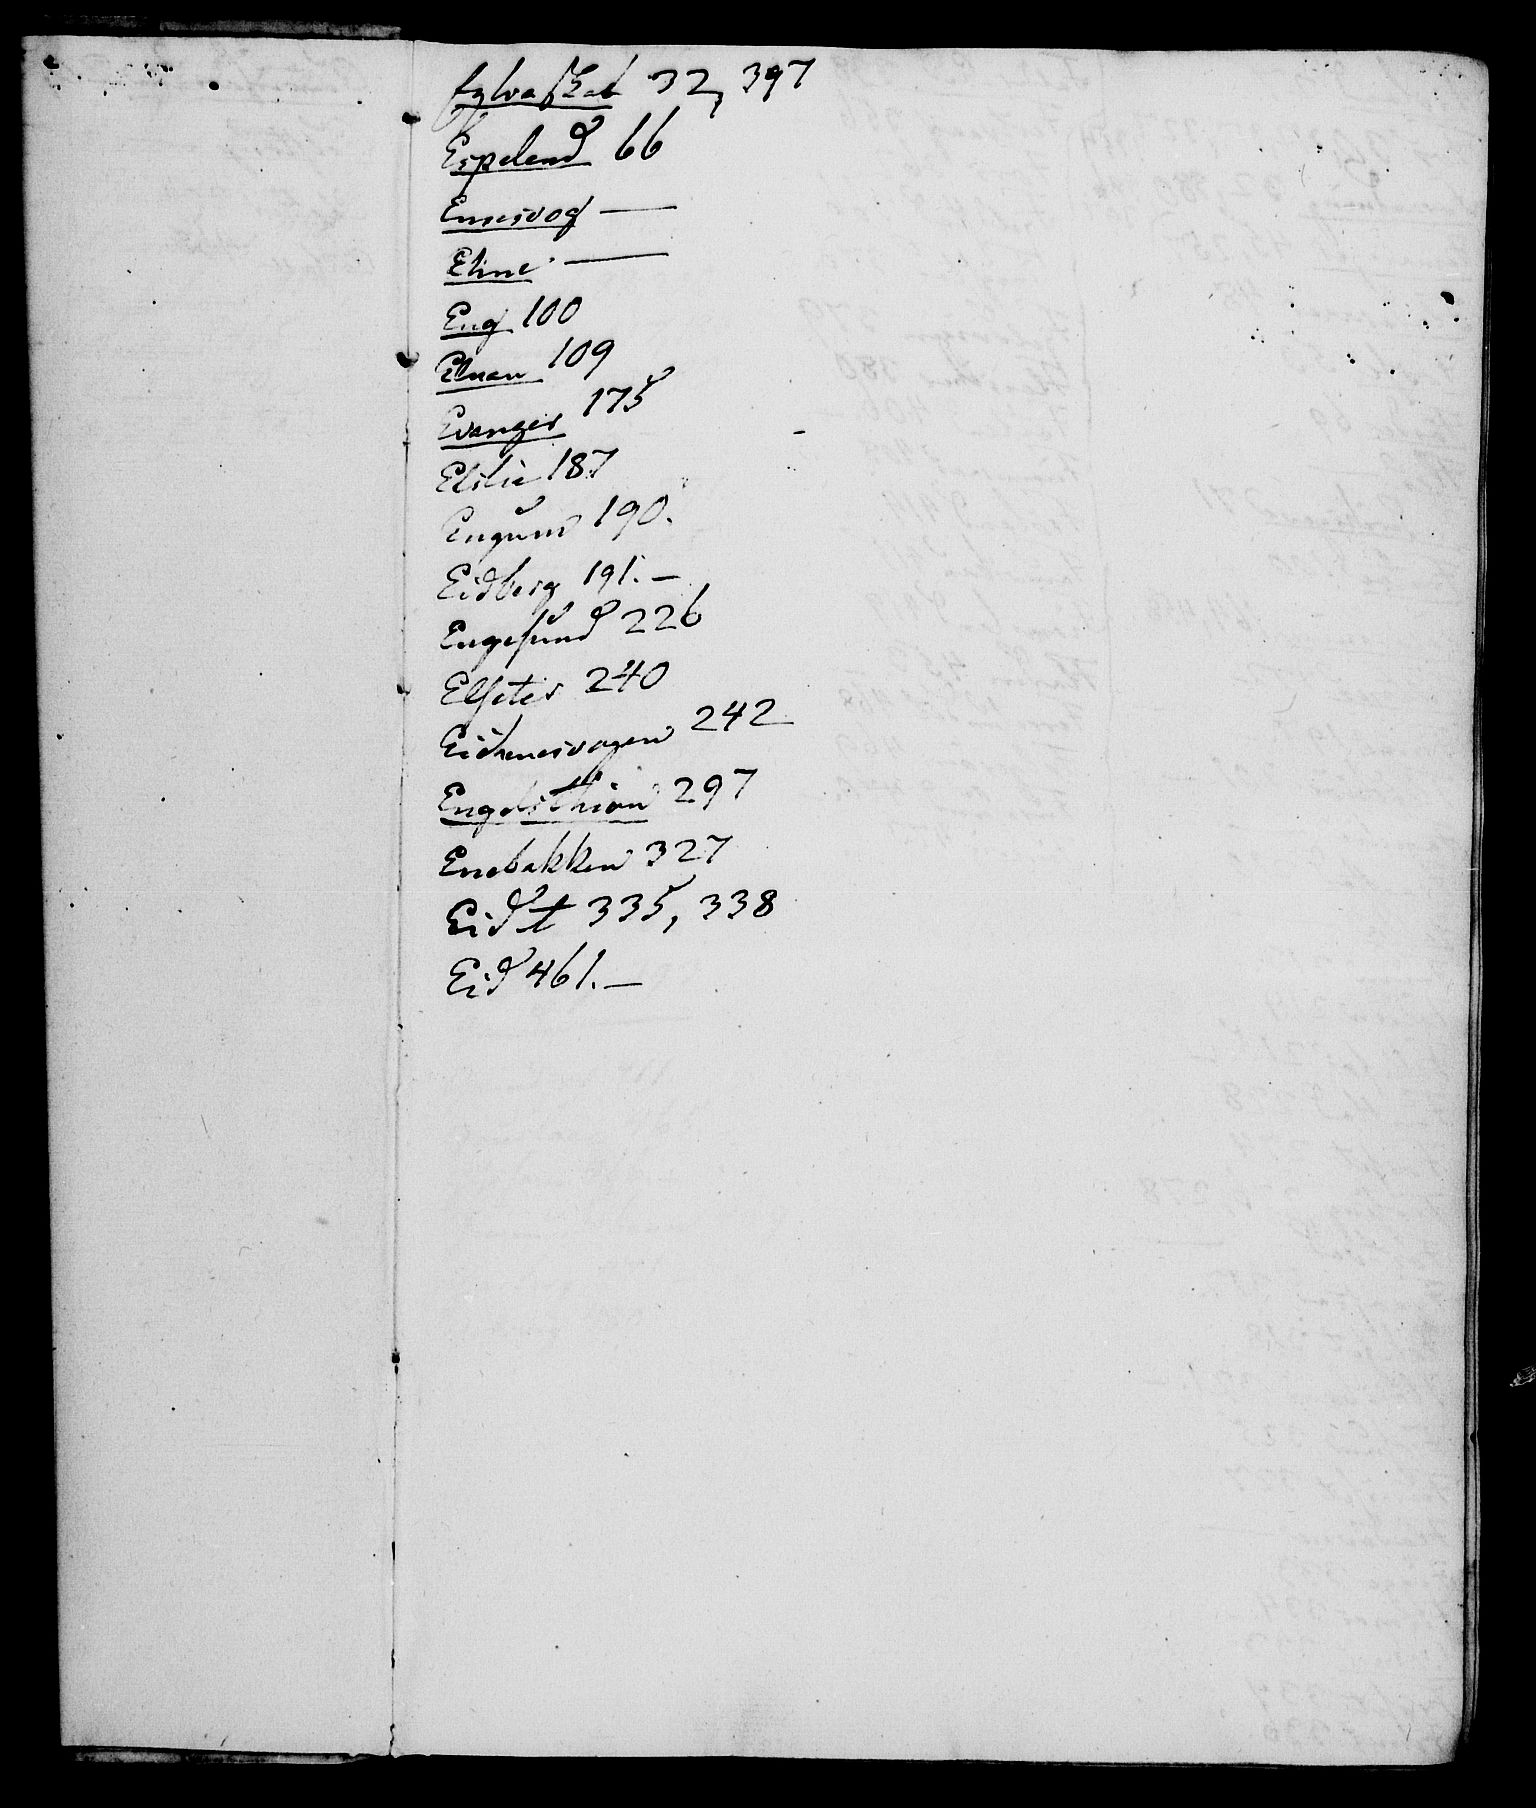 32, 397
Espeland 66
Emesvog —
Eline —
Eng 100
109
Evanger 175
Elstie 187
Engum 190.
Eidberg 191. —
Engesund 226
Elseter 240
Eidsnesvogen 242
Engelsthion 297
Enebakken 327
Eid t 335, 338
Eid 461. —